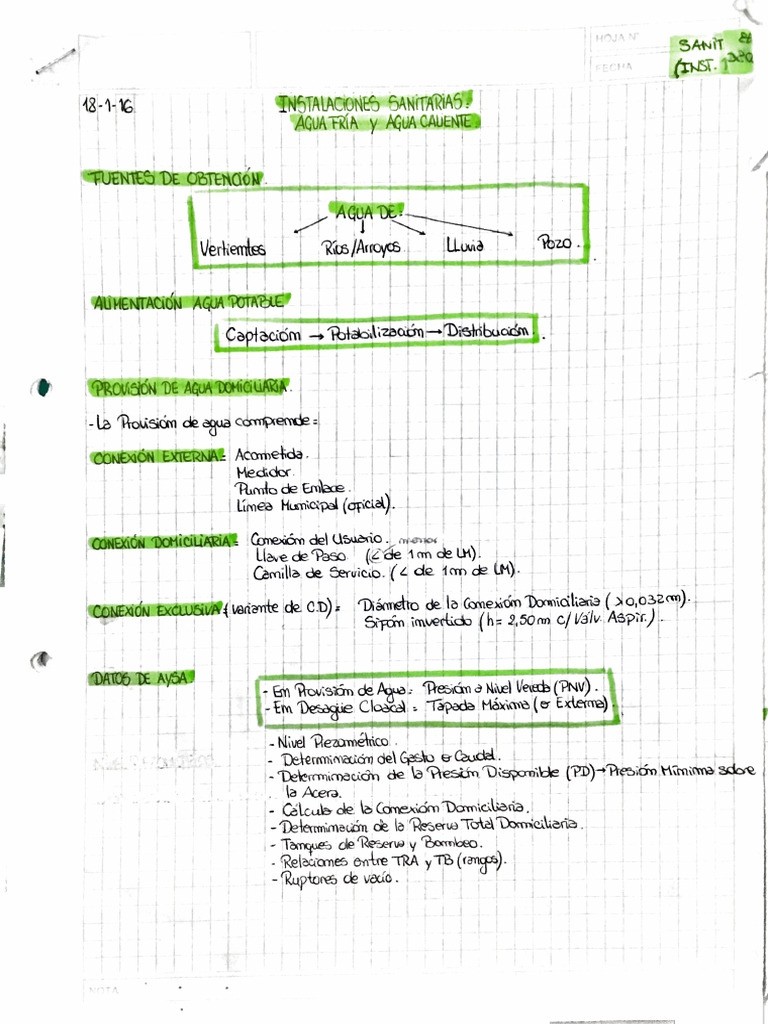 HOJA N°
FECHA
SANIT
(INST. 1
18-1-16
INSTALACIONES SANITARIAS:
AGUA FRÍA y AGUA CALIENTE.
FUENTES DE OBTENCIÓN.
AGUA DE:
Vertientes Ríos/Arroyos LLuvia Pozo.
ALIMENTACIÓN AGUA POTABLE
Captación → Potabilización → Distribución.
PROVISIÓN DE AGUA DOMICILIARIA.
- La Provisión de agua comprende:
CONEXIÓN EXTERNA: Acometida.
Medidor.
Punto de Enlace.
Línea Municipal (oficial).
CONEXIÓN DOMICILIARIA: Conexión del Usuario. menor
Llave de Paso (< de 1m de LM).
Camilla de Servicio. (< de 1m de LM).
CONEXIÓN EXCLUSIVA (variante de C.D) = Diámetro de la Conexión Domiciliaria (>0,032m).
Sifón invertido (h= 2,50m c/ Válv. Aspir.).
DATOS DE AYSA
- En Provisión de Agua: Presión a Nivel Vereda (PNV).
- En Desagüe Cloacal = Tapada Máxima (o Externa)
- Nivel Piezométrico.
- Determinación del Gasto o Caudal.
- Determinación de la Presión Disponible (PD) → Presión Mínima sobre
la Acera.
- Cálculo de la Conexión Domiciliaria.
- Determinación de la Reserva Total Domiciliaria.
- Tanques de Reserva y Bombeo.
- Relaciones entre TRA y TB (rangos).
- Ruptores de vacío.
NOTA